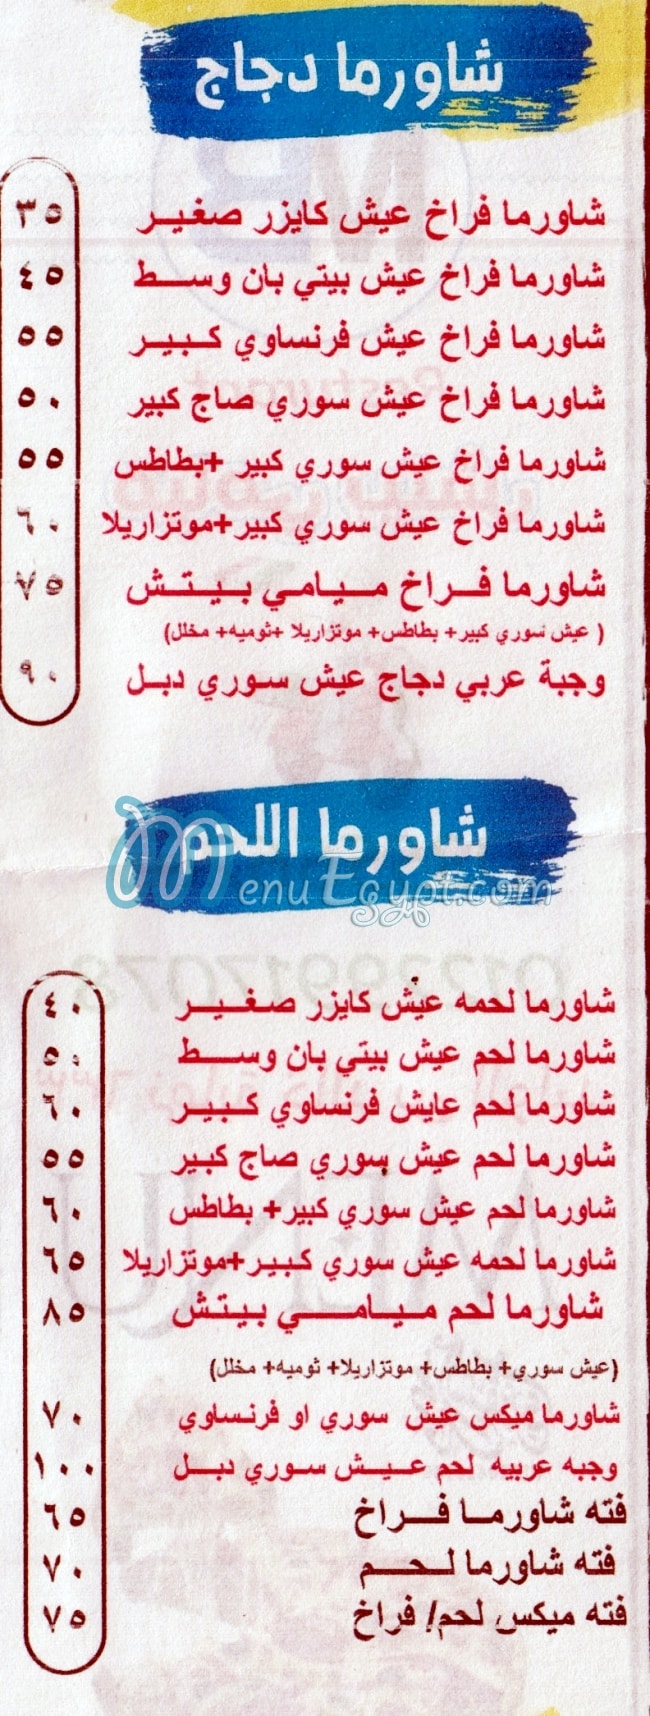 شاورما دجاج
شاورما فراخ عيش كايزر صغير ٣٥
شاورما فراخ عيش بيتي بان وسط ٤٥
شاورما فراخ عيش فرنساوي كبير ٥٥
شاورما فراخ عيش سوري صاج كبير ٥٠
شاورما فراخ عيش سوري كبير +بطاطس ٥٥
شاورما فراخ عيش سوري كبير+موتزاريلا ٦٠
شاورما فراخ ميامي بيتش ٧٥
( عيش سوري كبير+ بطاطس+ موتزاريلا +ثوميه+ مخلل)
وجبة عربي دجاج عيش سوري دبل ٩٠
شاورما اللحم
MenuEgypt.com
01229917078
شاورما لحمه عيش كايزر صغير ٤٠
شاورما لحم عيش بيتي بان وسط ٥٠
شاورما لحم عايش فرنساوي كبير ٦٠
شاورما لحم عيش سوري صاج كبير ٥٥
شاورما لحم عيش سوري كبير+ بطاطس ٦٠
شاورما لحمه عيش سوري كبير+موتزاريلا ٦٥
شاورما لحم ميامي بيتش ٨٥
(عيش سوري+ بطاطس+ موتزاريلا+ ثوميه+ مخلل)
شاورما ميكس عيش سوري او فرنساوي ٧٠
وجبه عربيه لحم عيش سوري دبل ١٠٠
فته شاورما فراخ ٦٥
فته شاورما لحم ٧٠
فته ميكس لحم/ فراخ ٧٥